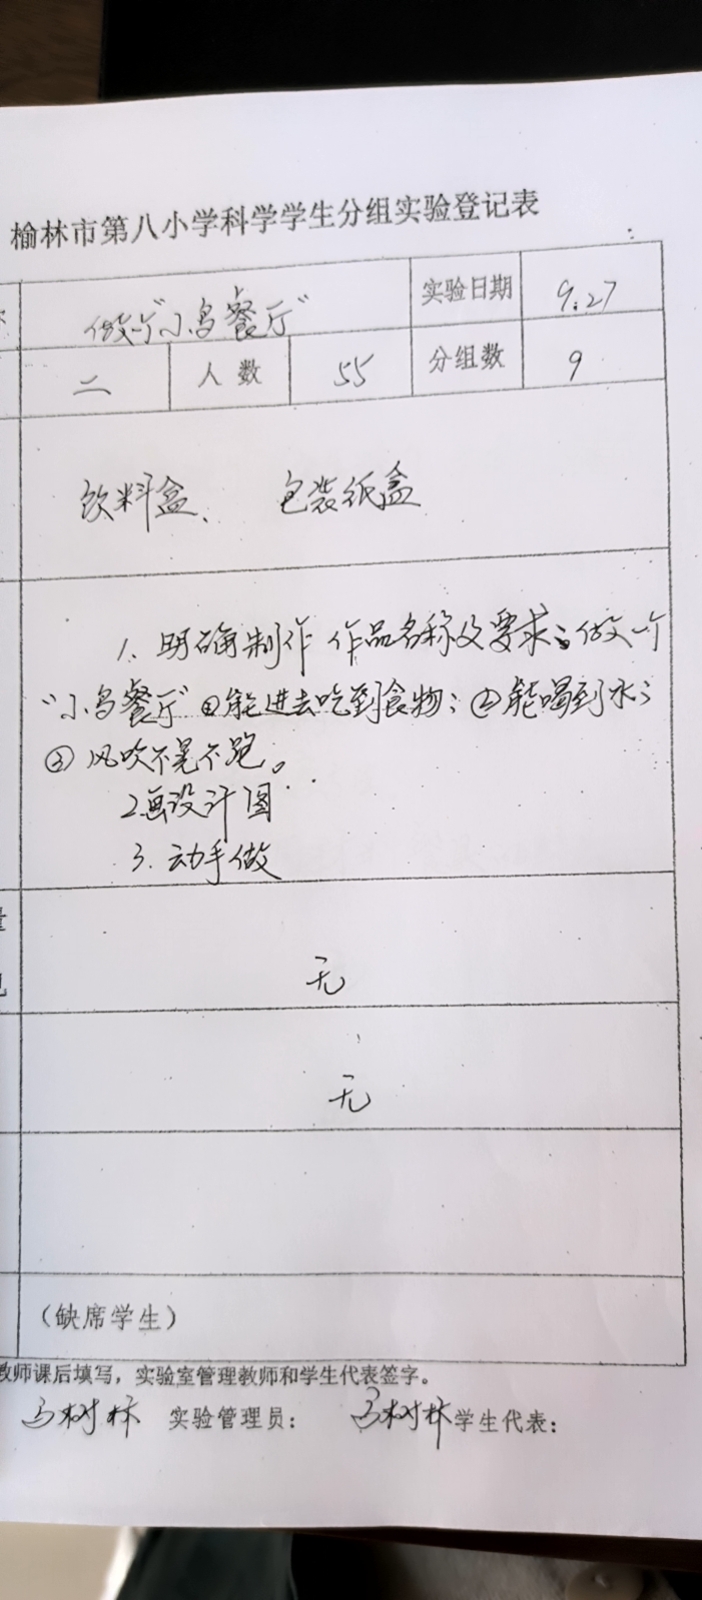 榆林市第八小学科学学生分组实验登记表
做个“小鸟餐厅” 实验日期 9.27
二 人数 55 分组数 9
饮料盒、 包装纸盒
1. 明确制作作品名称及要求：做一个
“小鸟餐厅”①能进去吃到食物；②能喝到水；
③风吹不晃不跑。
2.画设计图
3.动手做
量
无
无
（缺席学生）
教师课后填写，实验室管理教师和学生代表签字。
马树林 实验管理员： 马树林 学生代表：